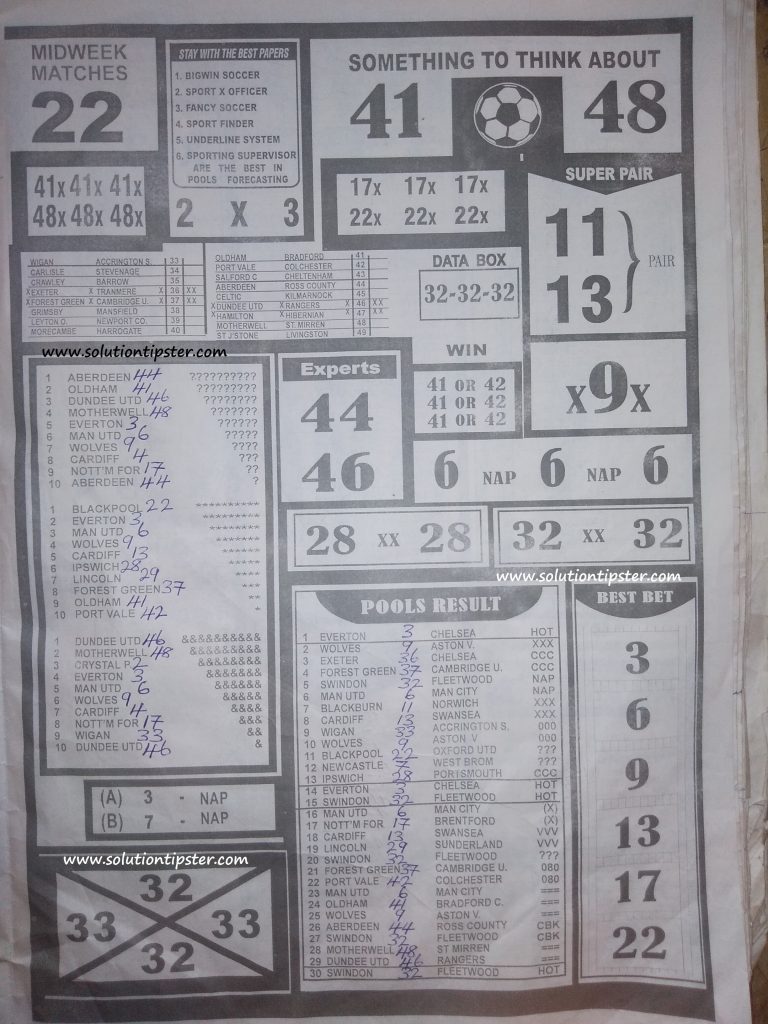 MIDWEEK
MATCHES
22
STAY WITH THE BEST PAPERS
1. BIGWIN SOCCER
2. SPORT X OFFICER
3. FANCY SOCCER
4. SPORT FINDER
5. UNDERLINE SYSTEM
6. SPORTING SUPERVISOR
ARE THE BEST IN
POOLS FORECASTING
2 X 3
SOMETHING TO THINK ABOUT
41 48
41x 41x 41x
48x 48x 48x
17x 17x 17x
22x 22x 22x
SUPER PAIR
11
13
PAIR
WIGAN ACCRINGTON S. 33
CARLISLE STEVENAGE 34
CRAWLEY BARROW 35
X EXETER X TRANMERE X 36 XX
X FOREST GREEN X CAMBRIDGE U. X 37 XX
GRIMSBY MANSFIELD 38
LEYTON O. NEWPORT CO. 39
MORECAMBE HARROGATE 40
OLDHAM BRADFORD 41
PORT VALE COLCHESTER 42
SALFORD C CHELTENHAM 43
ABERDEEN ROSS COUNTY 44
CELTIC KILMARNOCK 45
X DUNDEE UTD X RANGERS X 46 XX
X HAMILTON X HIBERNIAN X 47 XX
MOTHERWELL ST. MIRREN 48
ST J'STONE LIVINGSTON 49
DATA BOX
32-32-32
www.solutiontipster.com
1 ABERDEEN 44 ??????????
2 OLDHAM 41 ?????????
3 DUNDEE UTD 46 ????????
4 MOTHERWELL 48 ???????
5 EVERTON 3 ??????
6 MAN UTD 6 ?????
7 WOLVES 9 ????
8 CARDIFF 4 ???
9 NOTT'M FOR 17 ??
10 ABERDEEN 44 ?
1 BLACKPOOL 22 **********
2 EVERTON 3 *********
3 MAN UTD 6 ********
4 WOLVES 9 *******
5 CARDIFF 13 ******
6 IPSWICH 28 *****
7 LINCOLN 29 ****
8 FOREST GREEN 37 ***
9 OLDHAM 41 **
10 PORT VALE 42 *
1 DUNDEE UTD 46 &&&&&&&&&&
2 MOTHERWELL 48 &&&&&&&&&
3 CRYSTAL P. 2 &&&&&&&&
4 EVERTON 3 &&&&&&&
5 MAN UTD 6 &&&&&&
6 WOLVES 9 &&&&&
7 CARDIFF 4 &&&&
8 NOTT'M FOR 17 &&&
9 WIGAN 33 &&
10 DUNDEE UTD 46 &
Experts
44
46
WIN
41 OR 42
41 OR 42
41 OR 42
x9x
6 NAP 6 NAP 6
28 XX 28
32 XX 32
www.solutiontipster.com
POOLS RESULT
1 EVERTON 3 CHELSEA HOT
2 WOLVES 9 ASTON V. XXX
3 EXETER 36 CHELSEA CCC
4 FOREST GREEN 37 CAMBRIDGE U. CCC
5 SWINDON 32 FLEETWOOD NAP
6 MAN UTD 6 MAN CITY NAP
7 BLACKBURN 11 NORWICH XXX
8 CARDIFF 13 SWANSEA XXX
9 WIGAN 33 ACCRINGTON S. 000
10 WOLVES 9 ASTON V 000
11 BLACKPOOL 22 OXFORD UTD ???
12 NEWCASTLE 7 WEST BROM ???
13 IPSWICH 28 PORTSMOUTH CCC
14 EVERTON 3 CHELSEA HOT
15 SWINDON 32 FLEETWOOD HOT
16 MAN UTD 6 MAN CITY (X)
17 NOTT'M FOR 17 BRENTFORD (X)
18 CARDIFF 13 SWANSEA VVV
19 LINCOLN 29 SUNDERLAND VVV
20 SWINDON 32 FLEETWOOD ???
21 FOREST GREEN 37 CAMBRIDGE U. 080
22 PORT VALE 42 COLCHESTER 080
23 MAN UTD 6 MAN CITY ===
24 OLDHAM 41 BRADFORD C. ===
25 WOLVES 9 ASTON V. ===
26 ABERDEEN 44 ROSS COUNTY CBK
27 SWINDON 32 FLEETWOOD CBK
28 MOTHERWELL 48 ST MIRREN ===
29 DUNDEE UTD 46 RANGERS ===
30 SWINDON 32 FLEETWOOD HOT
BEST BET
3
6
9
13
17
22
(A) 3 - NAP
(B) 7 - NAP
www.solutiontipster.com
32
33 33
32